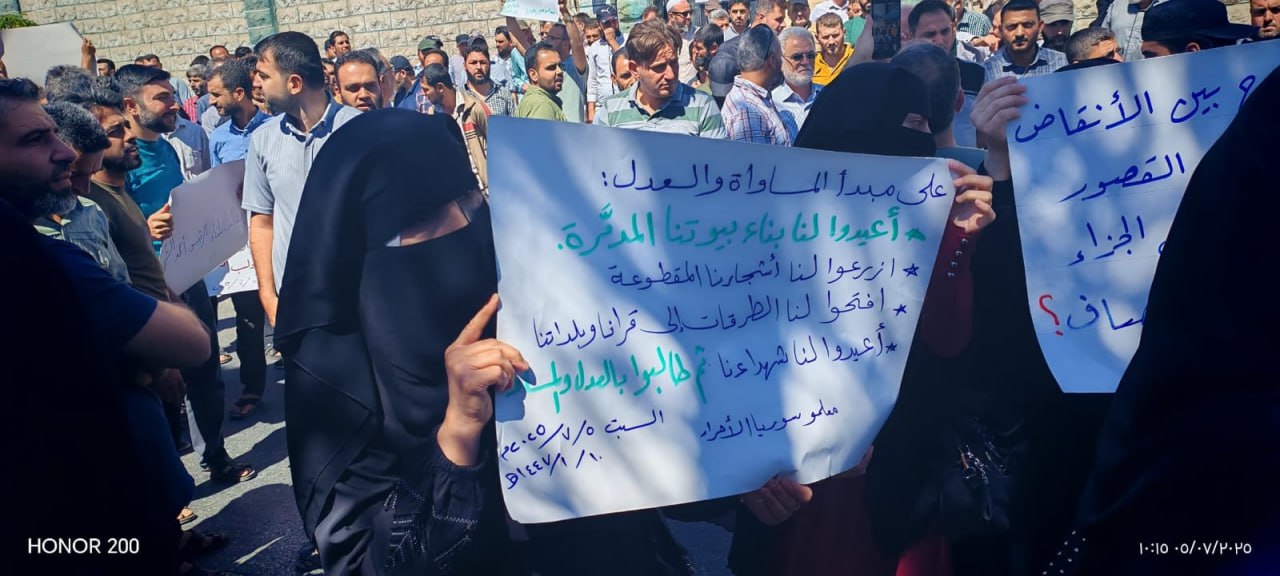 على مبدأ المساواة والعدل:
* أعيدوا لنا بناء بيوتنا المدمَّرة.
* ازرعوا لنا أشجارنا المقطوعة
* افتحوا لنا الطرقات إلى قرانا وبلداتنا
* أعيدوا لنا شهداءنا ثم طالبوا بالعدل
معلمو سوريا الأحرار
السبت ٢٠٢٥/٧/٥م
١٤٤٧/١/١٠هـ
بين الأنقاض
القصور
الجزاء
؟
HONOR 200
١٠:١٥ ٠٥/٠٧/٢٠٢٥